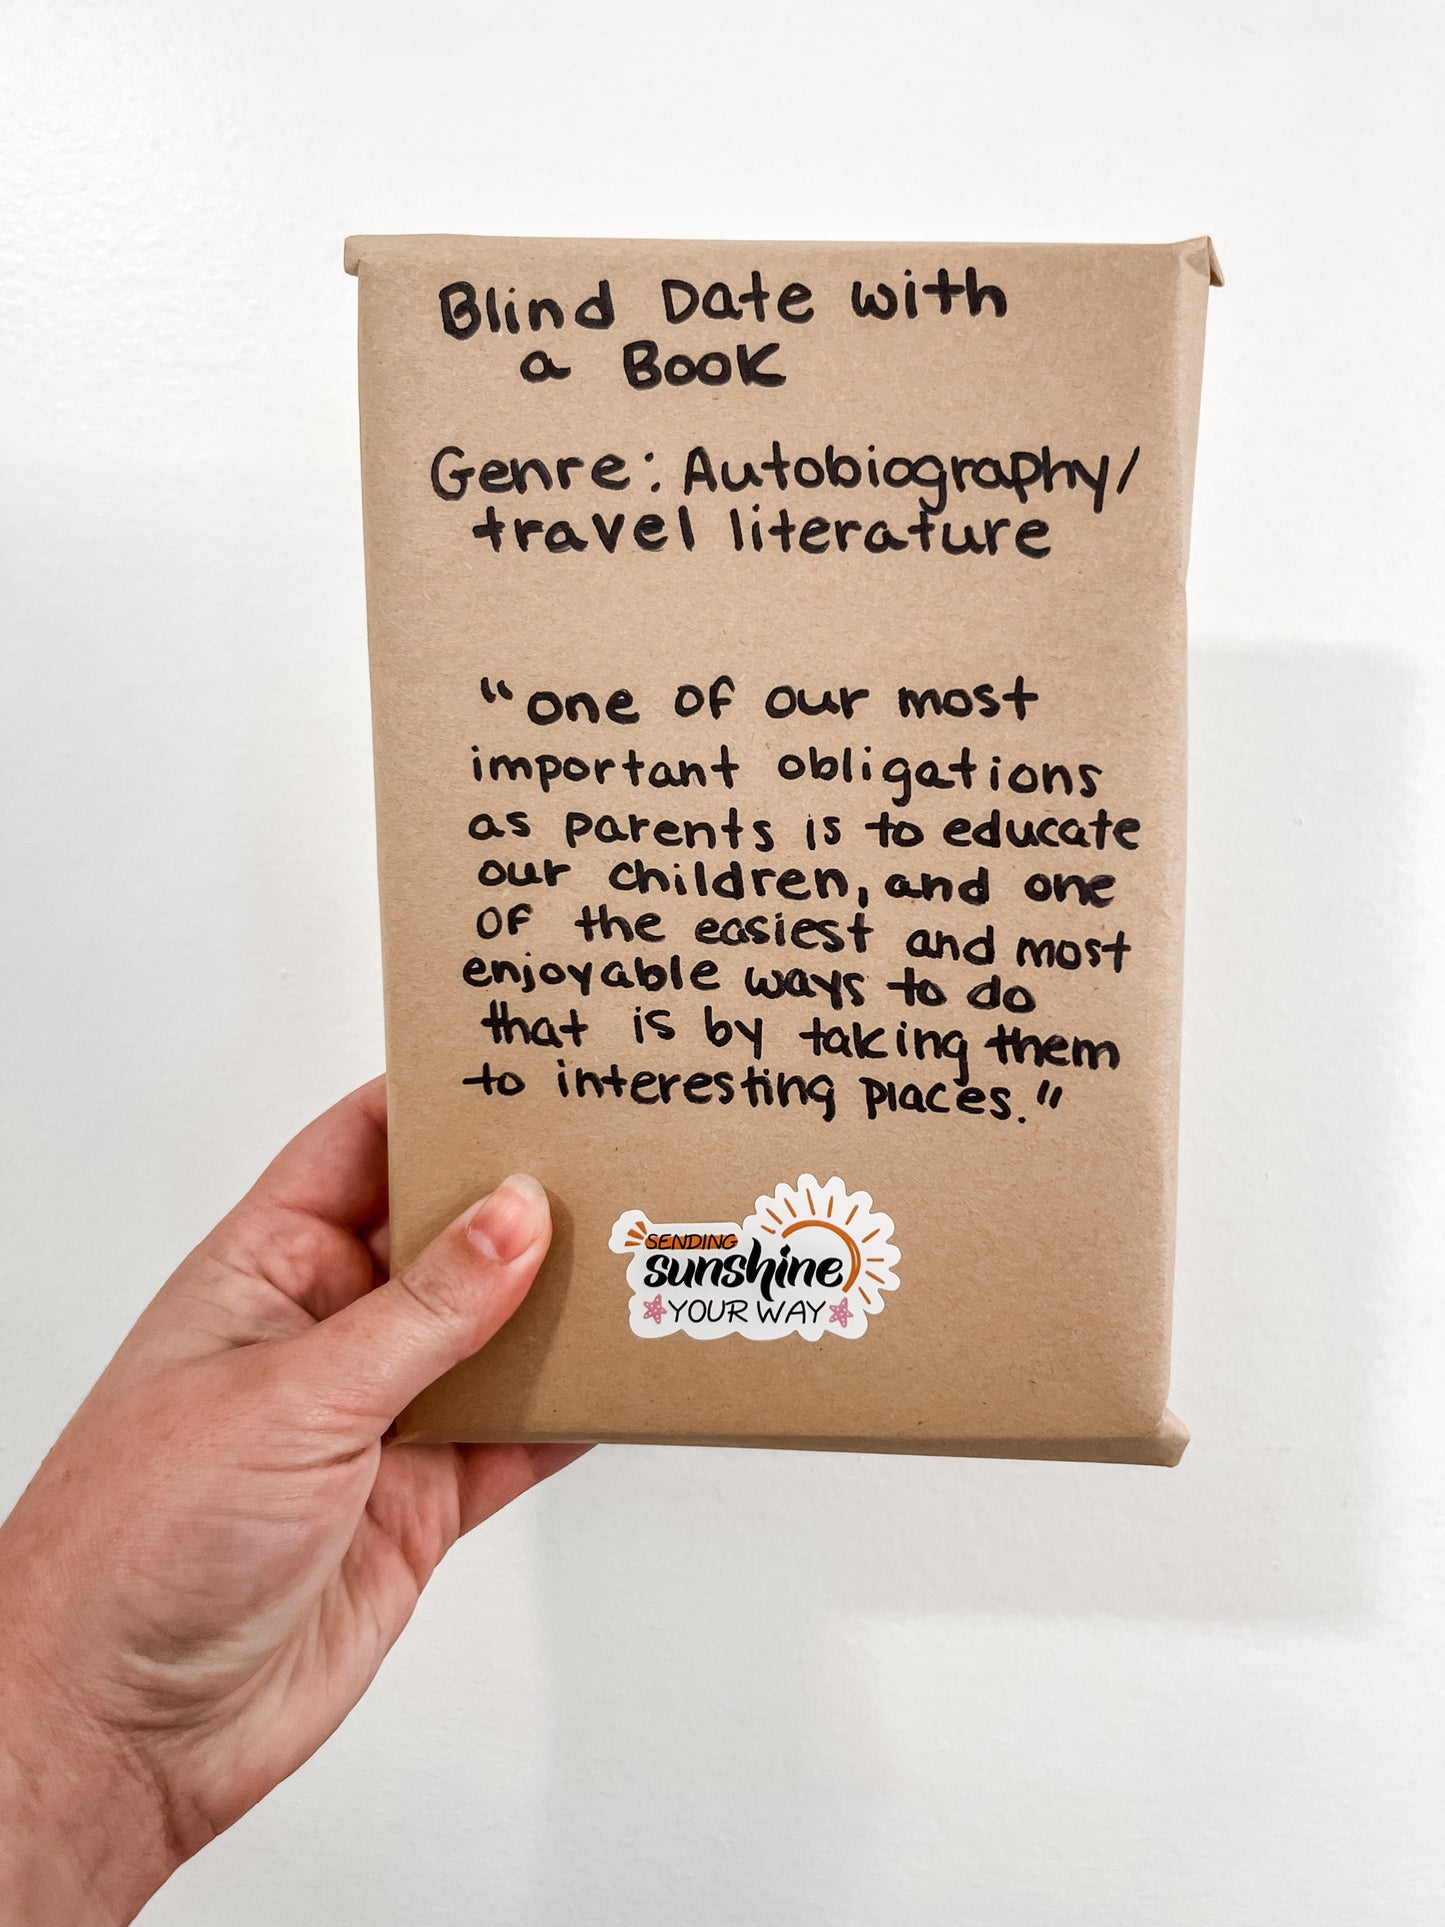 Blind Date with
a Book
Genre: Autobiography/
travel literature
"one of our most
important obligations
as parents is to educate
our children, and one
of the easiest and most
enjoyable ways to do
that is by taking them
to interesting places."
SENDING
sunshine
YOUR WAY